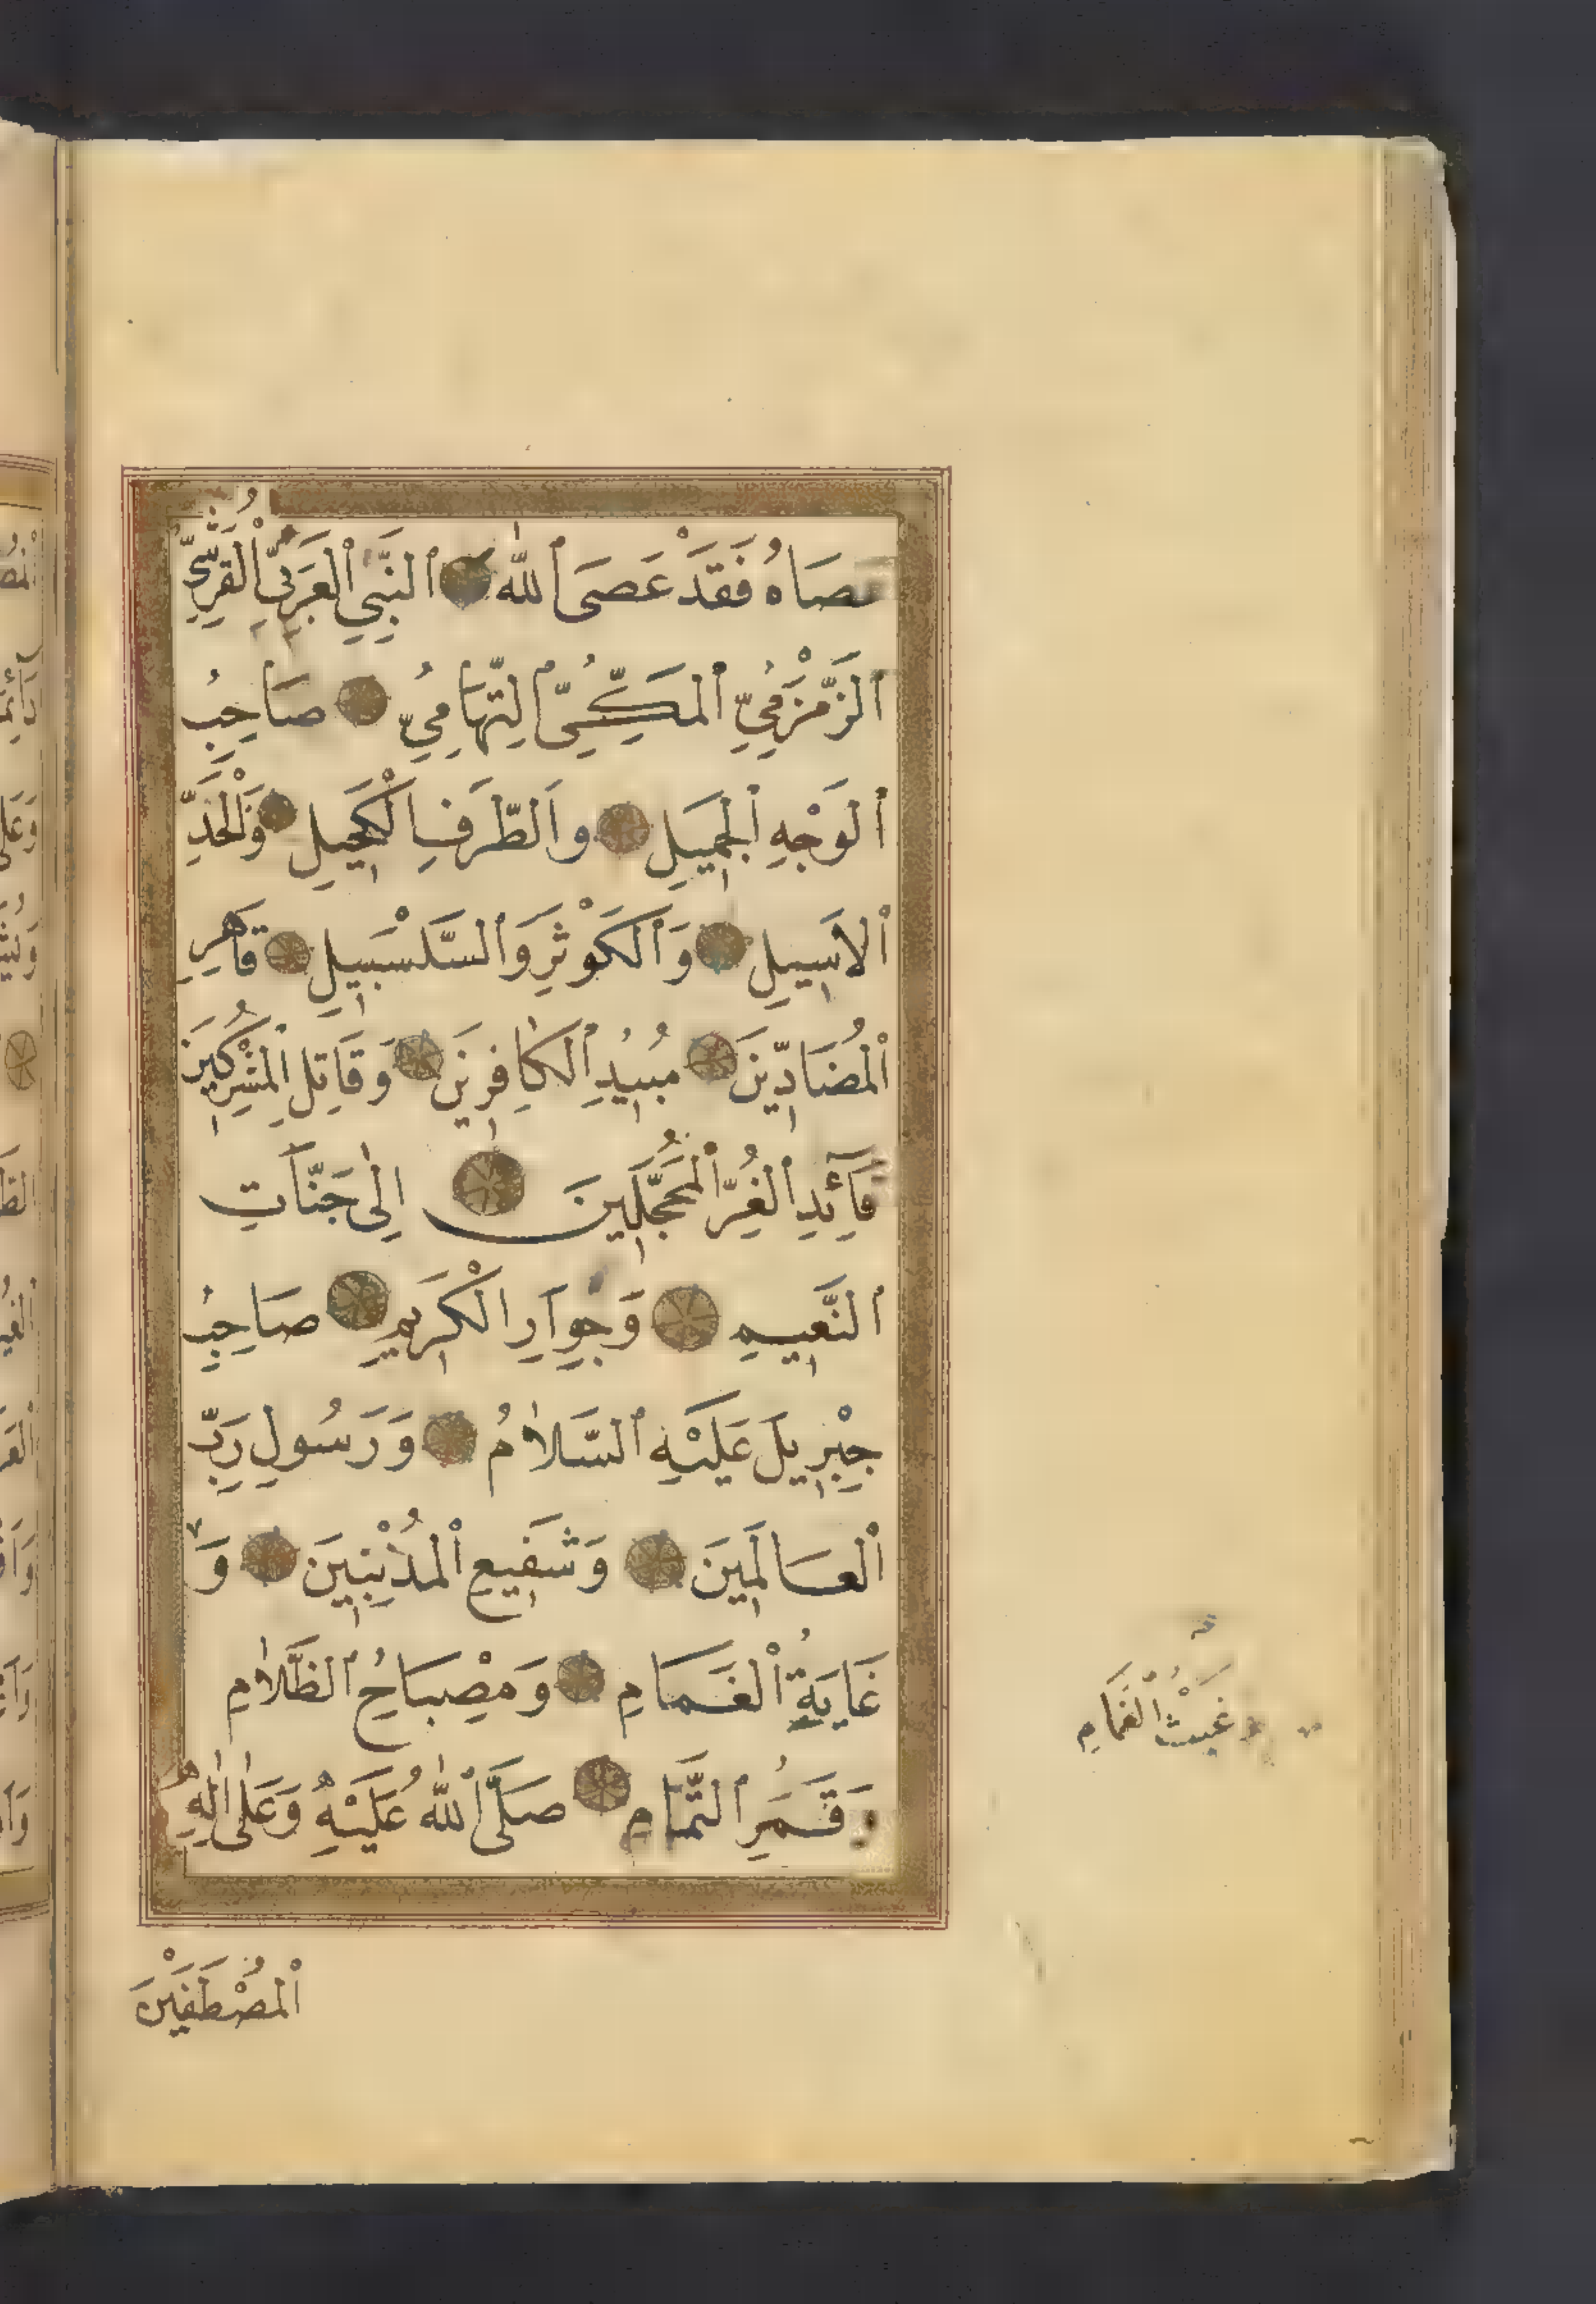 عَصَاهُ فَقَدْ عَصَى ٱللّٰهَ ٱلنَّبِيِّ ٱلْعَرَبِيِّ ٱلْقُرَشِيِّ
ٱلزَّمْزَمِيِّ ٱلْمَكِّيِّ ٱلتِّهَامِيِّ صَاحِبِ
ٱلْوَجْهِ ٱلْجَمِيلِ وَٱلطَّرْفِ ٱلْكَحِيلِ وَٱلْخَدِّ
ٱلْأَسِيلِ وَٱلْكَوْثَرِ وَٱلسَّلْسَبِيلِ قَاهِرِ
ٱلْمُضَادِّينَ مُبِيدِ ٱلْكَافِرِينَ وَقَاتِلِ ٱلْمُشْرِكِينَ
قَآئِدِ ٱلْغُرِّ ٱلْمُحَجَّلِينَ إِلٰى جَنَّاتِ
ٱلنَّعِيمِ وَجِوَارِ ٱلْكَرِيمِ صَاحِبِ
جِبْرِيلَ عَلَيْهِ ٱلسَّلَامُ وَرَسُولِ رَبِّ
ٱلْعَالَمِينَ وَشَفِيعِ ٱلْمُذْنِبِينَ وَ
غَايَةِ ٱلْغَمَامِ وَمِصْبَاحِ ٱلظَّلَامِ
وَقَمَرِ ٱلتَّمَامِ صَلَّى ٱللّٰهُ عَلَيْهِ وَعَلٰى اٰلِهِ
ٱلْمُصْطَفَيْنَ
وَغَيْثُ ٱلْغَمَامِ